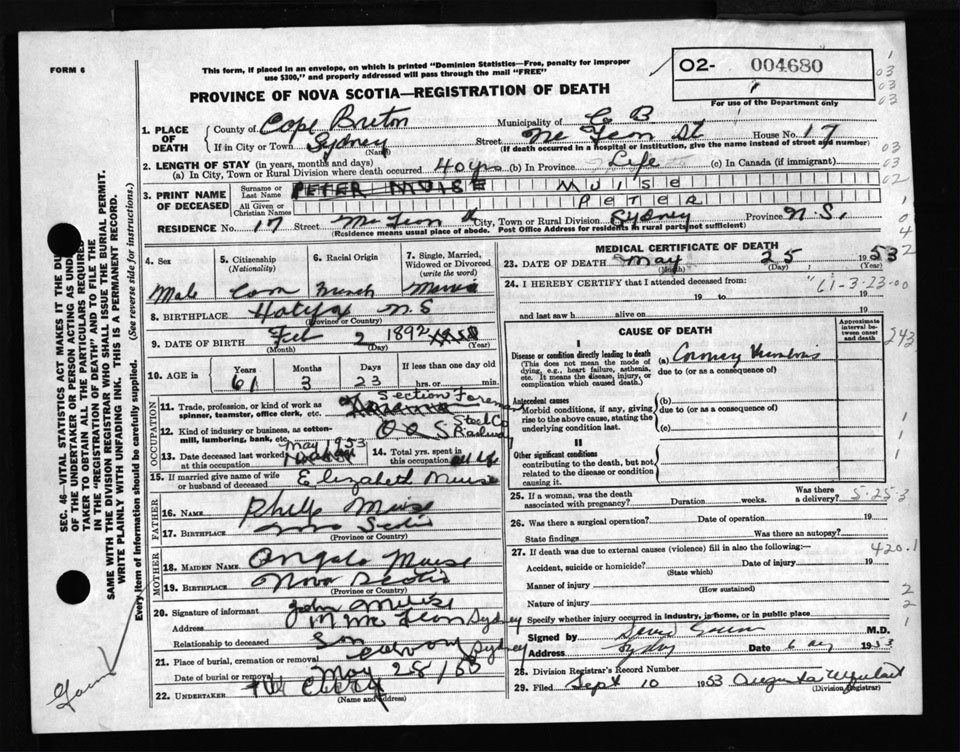 FORM 6
This form, if placed in an envelope, on which is printed "Dominion Statistics—Free, penalty for improper
use $300," and properly addressed will pass through the mail "FREE"
O2- 004680
For use of the Department only
PROVINCE OF NOVA SCOTIA—REGISTRATION OF DEATH
1. PLACE OF DEATH
County of Cape Breton Municipality of C B
If in City or Town Sydney Street St House No. 17
(Name) (If death occurred in a hospital or institution, give the name instead of street and number)
2. LENGTH OF STAY (in years, months and days)
(a) In City, Town or Rural Division where death occurred 40 yrs (b) In Province Life (c) In Canada (if immigrant)
3. PRINT NAME OF DECEASED
Surname or Last Name PETER MUISE MUISE
All Given or Christian Names PETER
RESIDENCE No. 17 Street City, Town or Rural Division Sydney Province N.S.
(Residence means usual place of abode. Post Office Address for residents in rural parts not sufficient)
4. Sex Male
5. Citizenship (Nationality)
6. Racial Origin French
7. Single, Married, Widowed or Divorced (write the word)
8. BIRTHPLACE N.S
(Province or Country)
9. DATE OF BIRTH Feb 2 1892
(Month) (Day) (Year)
10. AGE in Years Months Days If less than one day old
61 3 23 hrs. or min.
OCCUPATION
11. Trade, profession, or kind of work as spinner, teamster, office clerk, etc. Section Foreman
12. Kind of industry or business, as cotton-mill, lumbering, bank, etc. Steel Co Railway
13. Date deceased last worked at this occupation May 1953
14. Total yrs. spent in this occupation all life
15. If married give name of wife or husband of deceased Elizabeth Muise
FATHER
16. NAME Muise
17. BIRTHPLACE Nova Scotia
(Province or Country)
MOTHER
18. MAIDEN NAME Muise
19. BIRTHPLACE Nova Scotia
(Province or Country)
20. Signature of informant John Muise
Address Sydney
Relationship to deceased Son
21. Place of burial, cremation or removal Sydney
Date of burial or removal May 28/53
22. UNDERTAKER
(Name and Address)
MEDICAL CERTIFICATE OF DEATH
23. DATE OF DEATH May 25 1953
(Month) (Day) (Year)
24. I HEREBY CERTIFY that I attended deceased from:
19 to 19
and last saw h alive on 19
61-3-23-00
CAUSE OF DEATH
Approximate interval between onset and death
I
Disease or condition directly leading to death
(This does not mean the mode of dying, e.g., heart failure, asthenia, etc. It means the disease, injury, or complication which caused death.)
(a)
due to (or as a consequence of)
Antecedent causes
Morbid conditions, if any, giving rise to the above cause, stating the underlying condition last.
(b)
due to (or as a consequence of)
(c)
II
Other significant conditions
contributing to the death, but not related to the disease or condition causing it.
243
25. If a woman, was the death associated with pregnancy? Duration weeks. Was there a delivery?
5-25-3
26. Was there a surgical operation? Date of operation 19
State findings Was there an autopsy?
27. If death was due to external causes (violence) fill in also the following:—
420.1
Accident, suicide or homicide? Date of injury 19
(State which)
Manner of injury
(How sustained)
Nature of injury
Specify whether injury occurred in industry, in home, or in public place
Signed by M.D.
Address Sydney Date 1953
28. Division Registrar's Record Number
29. Filed Sept 10 1953 Augusta
(Division Registrar)
SEC. 46—VITAL STATISTICS ACT MAKES IT THE DU
OF THE UNDERTAKER OR PERSON ACTING AS UND
TAKER TO OBTAIN ALL THE PARTICULARS REQUIRED
IN THE "REGISTRATION OF DEATH" AND TO FILE THE
SAME WITH THE DIVISION REGISTRAR WHO SHALL ISSUE THE BURIAL PERMIT.
WRITE PLAINLY WITH UNFADING INK. THIS IS A PERMANENT RECORD.
Every item of information should be carefully supplied. (See reverse side for instructions.)